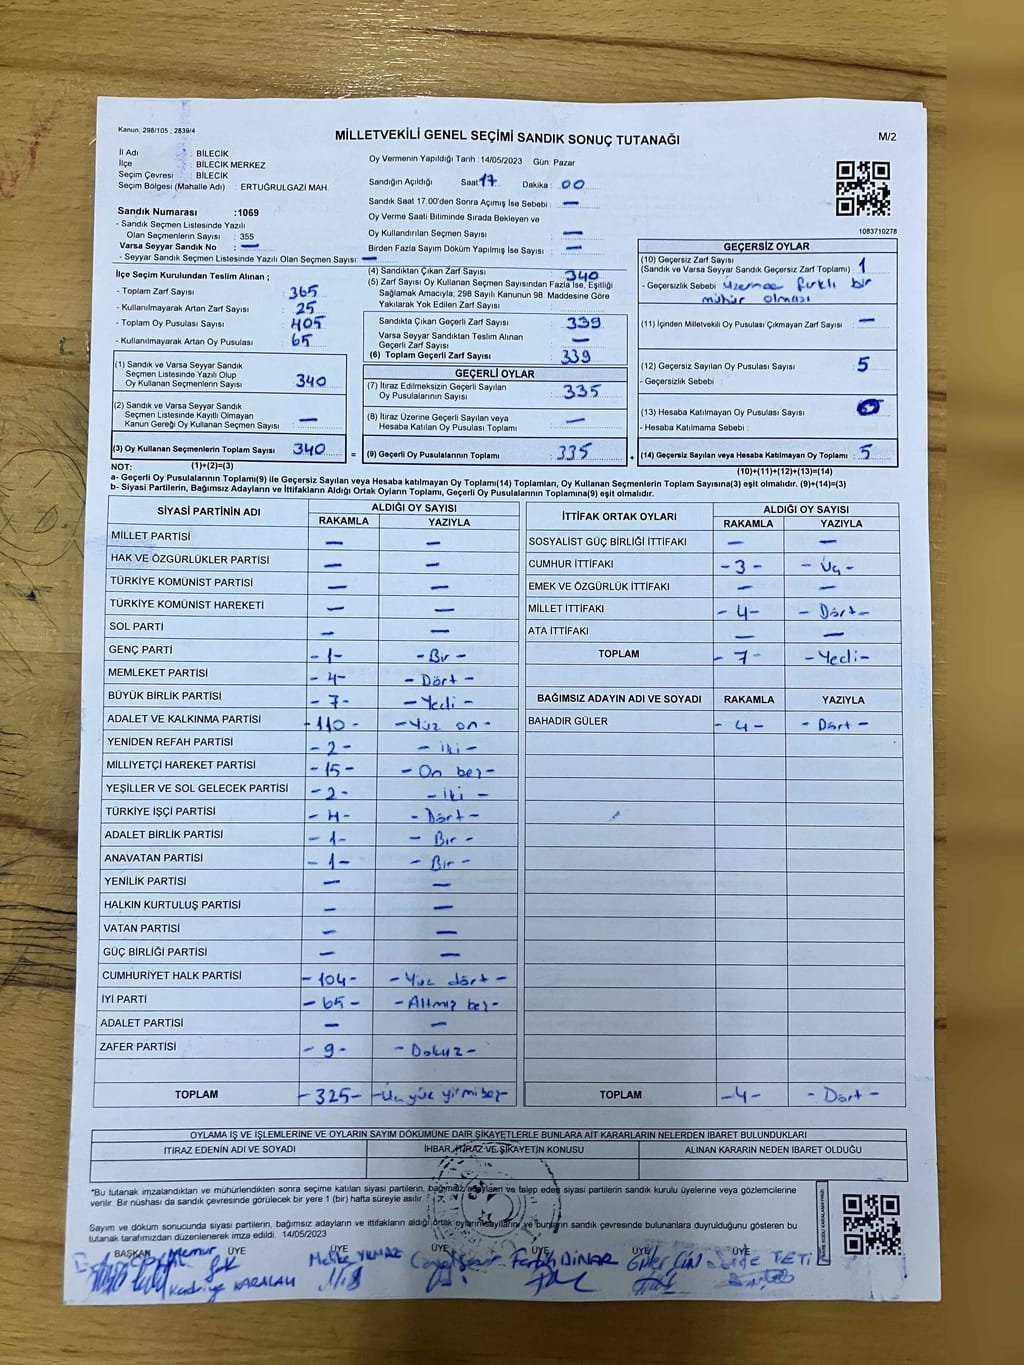 Kanun: 298/105 , 2839/4
MİLLETVEKİLİ GENEL SEÇİMİ SANDIK SONUÇ TUTANAĞI
M/2
İl Adı : BİLECİK
İlçe : BİLECİK MERKEZ
Seçim Çevresi : BİLECİK
Seçim Bölgesi (Mahalle Adı) : ERTUĞRULGAZİ MAH.
Sandık Numarası :1069
- Sandık Seçmen Listesinde Yazılı
Olan Seçmenlerin Sayısı : 355
Varsa Seyyar Sandık No : —
- Seyyar Sandık Seçmen Listesinde Yazılı Olan Seçmen Sayısı: —
Oy Vermenin Yapıldığı Tarih : 14/05/2023 Gün: Pazar
Sandığın Açıldığı Saat: 17 Dakika : 00
Sandık Saat 17.00'den Sonra Açımış İse Sebebi : —
Oy Verme Saati Bitiminde Sırada Bekleyen ve
Oy Kullandırılan Seçmen Sayısı : —
Birden Fazla Sayım Döküm Yapılmış İse Sayısı : —
1083710278
İlçe Seçim Kurulundan Teslim Alınan ;
- Toplam Zarf Sayısı : 365
- Kullanılmayarak Artan Zarf Sayısı : 25
- Toplam Oy Pusulası Sayısı : 405
- Kullanılmayarak Artan Oy Pusulası : 65
(1) Sandık ve Varsa Seyyar Sandık
Seçmen Listesinde Yazılı Olup
Oy Kullanan Seçmenlerin Sayısı : 340
(2) Sandık ve Varsa Seyyar Sandık
Seçmen Listesinde Kayıtlı Olmayan
Kanun Gereği Oy Kullanan Seçmen Sayısı : —
(3) Oy Kullanan Seçmenlerin Toplam Sayısı : 340
(4) Sandıktan Çıkan Zarf Sayısı : 340
(5) Zarf Sayısı Oy Kullanan Seçmen Sayısından Fazla İse, Eşitliği
Sağlamak Amacıyla, 298 Sayılı Kanunun 98. Maddesine Göre
Yakılarak Yok Edilen Zarf Sayısı :
Sandıkta Çıkan Geçerli Zarf Sayısı : 339
Varsa Seyyar Sandıktan Teslim Alınan
Geçerli Zarf Sayısı : —
(6) Toplam Geçerli Zarf Sayısı : 339
GEÇERLİ OYLAR
(7) İtiraz Edilmeksizin Geçerli Sayılan
Oy Pusulalarının Sayısı : 335
(8) İtiraz Üzerine Geçerli Sayılan veya
Hesaba Katılan Oy Pusulası Toplamı : —
= (9) Geçerli Oy Pusulalarının Toplamı : 335 +
GEÇERSİZ OYLAR
(10) Geçersiz Zarf Sayısı
(Sandık ve Varsa Seyyar Sandık Geçersiz Zarf Toplamı) : 1
- Geçersizlik Sebebi : üzerinde farklı bir
mühür olması
(11) İçinden Milletvekili Oy Pusulası Çıkmayan Zarf Sayısı : —
(12) Geçersiz Sayılan Oy Pusulası Sayısı : 5
- Geçersizlik Sebebi :
(13) Hesaba Katılmayan Oy Pusulası Sayısı :
- Hesaba Katılmama Sebebi :
(14) Geçersiz Sayılan veya Hesaba Katılmayan Oy Toplamı : 5
NOT: (1)+(2)=(3)
(10)+(11)+(12)+(13)=(14)
a- Geçerli Oy Pusulalarının Toplamı(9) ile Geçersiz Sayılan veya Hesaba katılmayan Oy Toplamı(14) Toplamları, Oy Kullanan Seçmenlerin Toplam Sayısına(3) eşit olmalıdır. (9)+(14)=(3)
b- Siyasi Partilerin, Bağımsız Adayların ve İttifakların Aldığı Ortak Oyların Toplamı, Geçerli Oy Pusulalarının Toplamına(9) eşit olmalıdır.
SİYASİ PARTİNİN ADI ALDIĞI OY SAYISI
RAKAMLA YAZIYLA
MİLLET PARTİSİ — —
HAK VE ÖZGÜRLÜKLER PARTİSİ — —
TÜRKİYE KOMÜNİST PARTİSİ — —
TÜRKİYE KOMÜNİST HAREKETİ — —
SOL PARTİ — —
GENÇ PARTİ -1- -Bir-
MEMLEKET PARTİSİ -4- -Dört-
BÜYÜK BİRLİK PARTİSİ -7- -Yedi-
ADALET VE KALKINMA PARTİSİ -110- -Yüz on-
YENİDEN REFAH PARTİSİ -2- -iki-
MİLLİYETÇİ HAREKET PARTİSİ -15- -On beş-
YEŞİLLER VE SOL GELECEK PARTİSİ -2- -iki-
TÜRKİYE İŞÇİ PARTİSİ -4- -Dört-
ADALET BİRLİK PARTİSİ -1- -Bir-
ANAVATAN PARTİSİ -1- -Bir-
YENİLİK PARTİSİ — —
HALKIN KURTULUŞ PARTİSİ — —
VATAN PARTİSİ — —
GÜÇ BİRLİĞİ PARTİSİ — —
CUMHURİYET HALK PARTİSİ -104- -Yüz dört-
İYİ PARTİ -65- -Altmış beş-
ADALET PARTİSİ — —
ZAFER PARTİSİ -9- -Dokuz-
TOPLAM -325- -Üç yüz yirmi beş-
İTTİFAK ORTAK OYLARI ALDIĞI OY SAYISI
RAKAMLA YAZIYLA
SOSYALİST GÜÇ BİRLİĞİ İTTİFAKI — —
CUMHUR İTTİFAKI -3- -Üç-
EMEK VE ÖZGÜRLÜK İTTİFAKI — —
MİLLET İTTİFAKI -4- -Dört-
ATA İTTİFAKI — —
TOPLAM -7- -Yedi-
BAĞIMSIZ ADAYIN ADI VE SOYADI RAKAMLA YAZIYLA
BAHADIR GÜLER -4- -Dört-
TOPLAM -4- -Dört-
OYLAMA İŞ VE İŞLEMLERİNE VE OYLARIN SAYIM DÖKÜMÜNE DAİR ŞİKAYETLERLE BUNLARA AİT KARARLARIN NELERDEN İBARET BULUNDUKLARI
İTİRAZ EDENİN ADI VE SOYADI İHBAR, İTİRAZ VE ŞİKAYETİN KONUSU ALINAN KARARIN NEDEN İBARET OLDUĞU
*Bu tutanak imzalandıktan ve mühürlendikten sonra seçime katılan siyasi partilerin, bağımsız adayların ve talep eden siyasi partilerin sandık kurulu üyelerine veya gözlemcilerine
verilir. Bir nüshası da sandık çevresinde görülecek bir yere 1 (bir) hafta süreyle asılır.
Sayım ve döküm sonucunda siyasi partilerin, bağımsız adayların ve ittifakların aldığı ortak oyların sayılarını ve bunların sandık çevresinde bulunanlara duyrulduğunu gösteren bu
tutanak tarafımızdan düzenlenerek imza edildi. 14/05/2023
BAŞKAN ÜYE ÜYE ÜYE ÜYE ÜYE ÜYE
Memur Melike YILMAZ Fatih DİNAR TETİ
Kadriye KARALAU